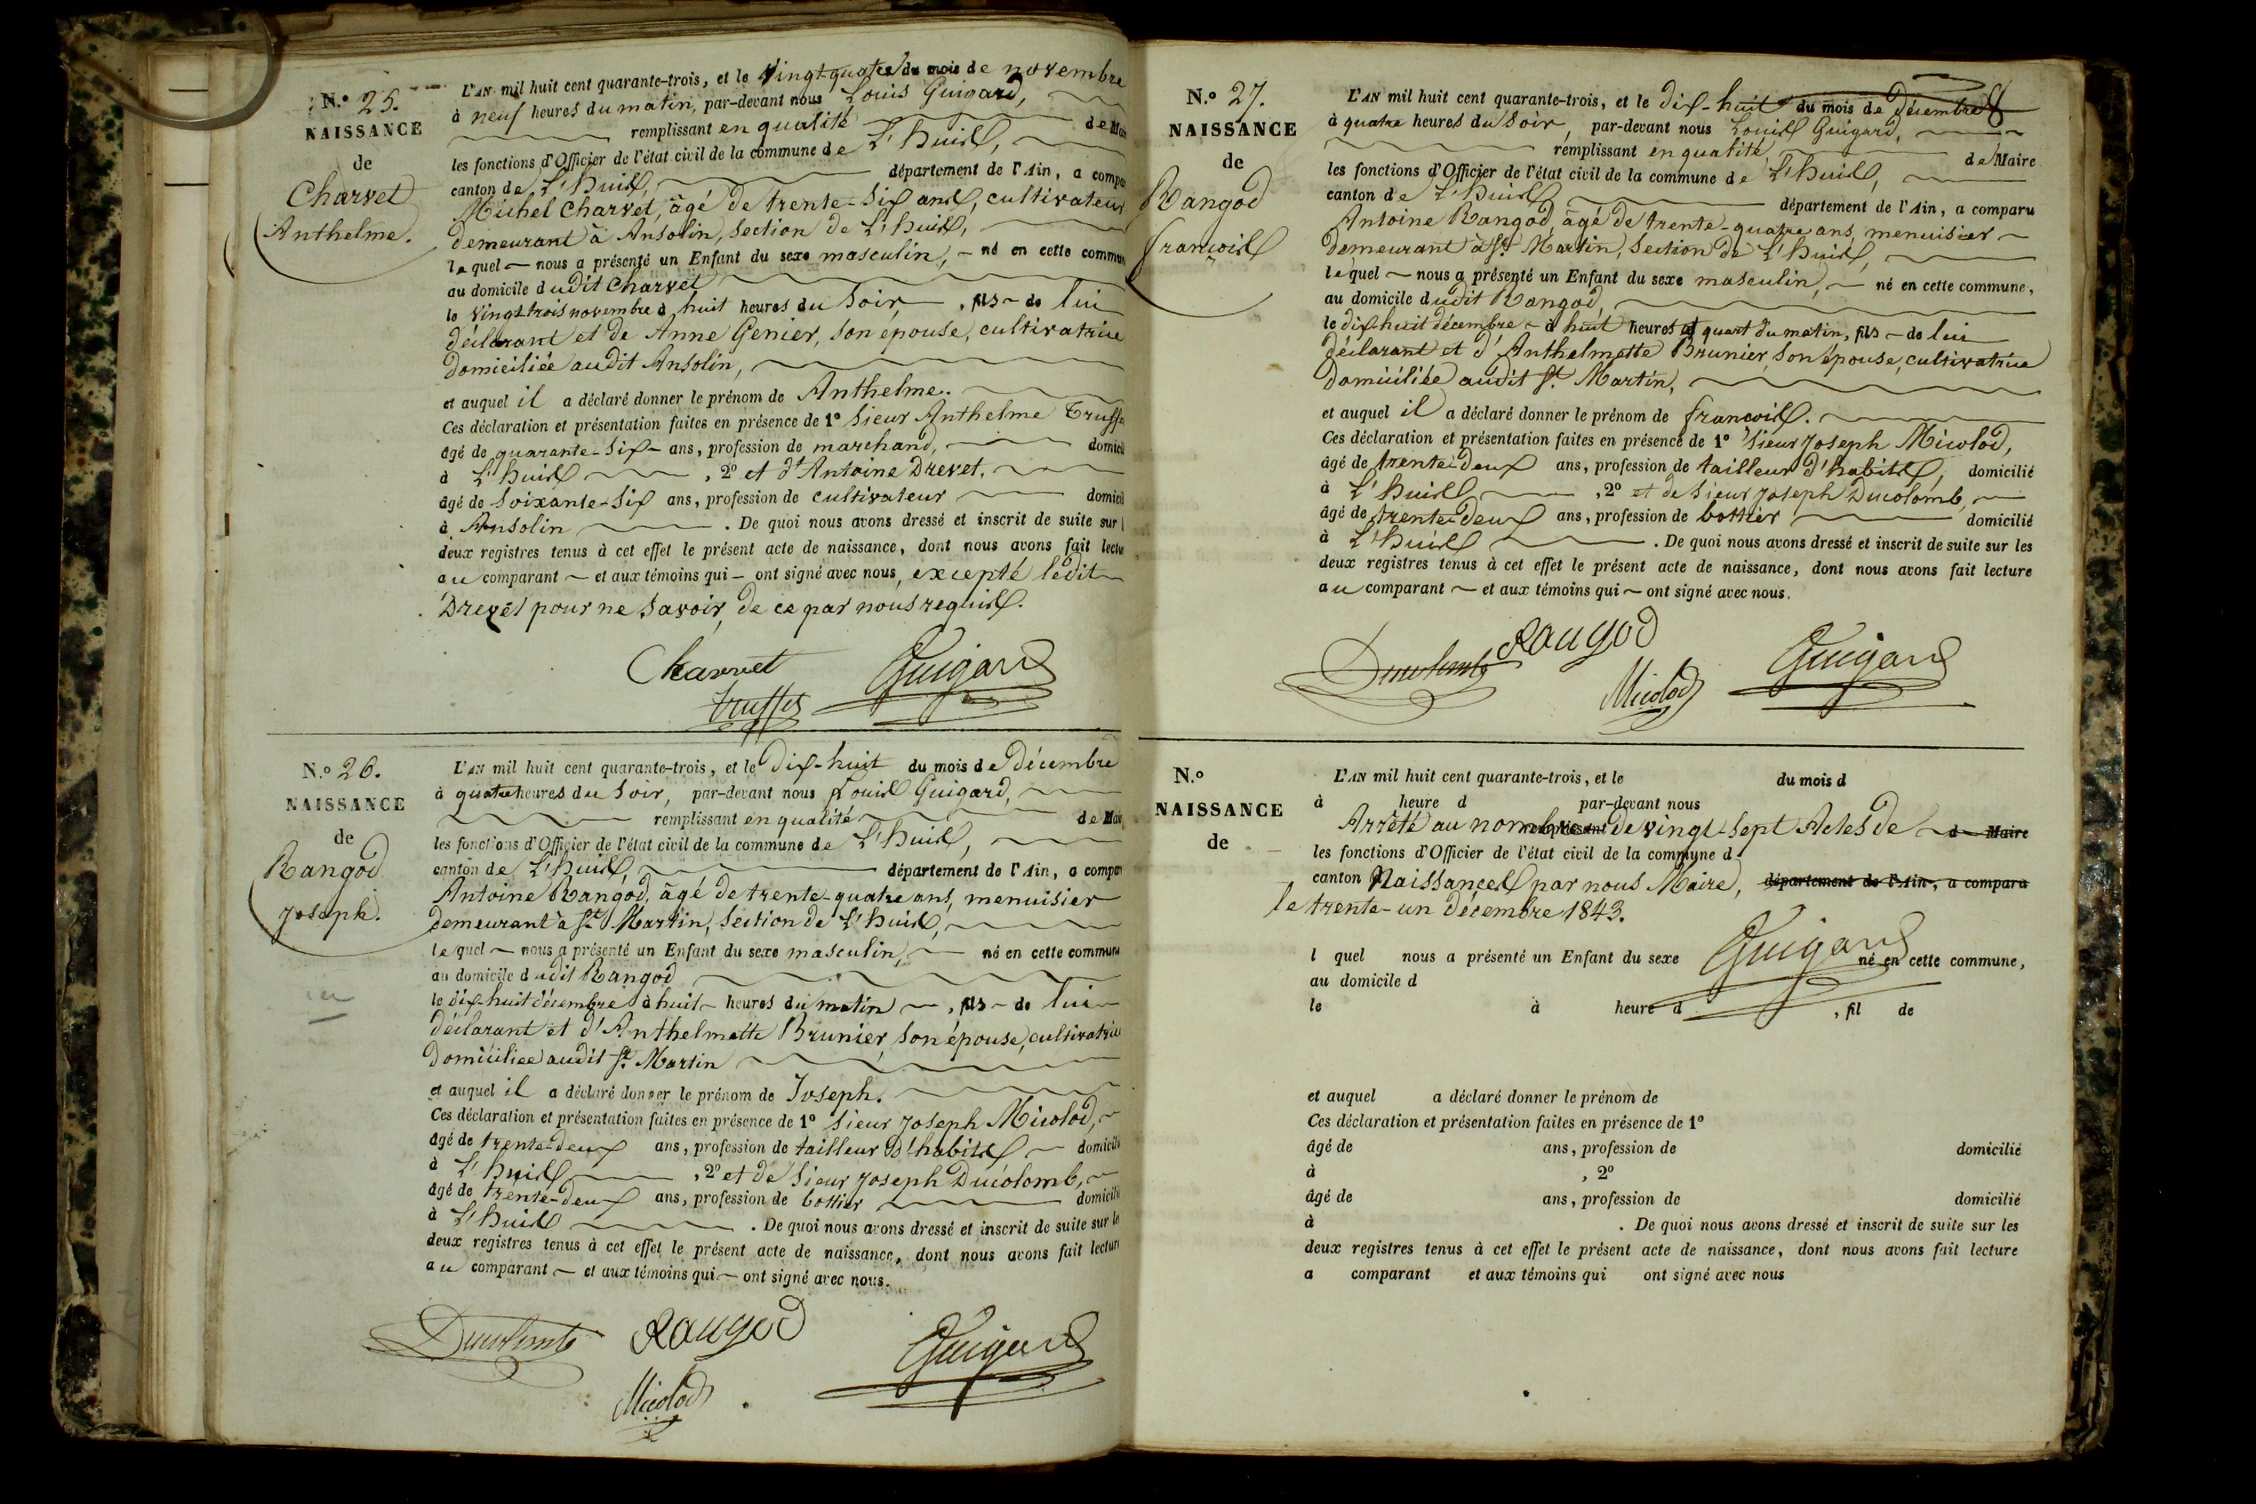 N.º 25.
NAISSANCE
de
Charvet
Anthelme.
L'AN mil huit cent quarante-trois, et le vingt-quatre du mois de novembre
à neuf heures du matin, par-devant nous Louis Guigard,
remplissant en qualité de Mai
les fonctions d'Officier de l'état civil de la commune de L'huis,
canton de L'huis, département de l'Ain, a compa
Michel Charvet, âgé de trente-six ans, cultivateur
demeurant à Ansolin, section de L'huis,
lequel nous a présenté un Enfant du sexe masculin, né en cette commun
au domicile dudit Charvet
le vingt-trois novembre à huit heures du soir, fils de lui
déclarant et de Anne Genier, son épouse, cultivatrice
domiciliée audit Ansolin,
et auquel il a déclaré donner le prénom de Anthelme.
Ces déclaration et présentation faites en présence de 1º Sieur Anthelme Truffe
âgé de quarante-six ans, profession de marchand, domicil
à L'huis , 2º et dt Antoine Drevet,
âgé de soixante-six ans, profession de cultivateur domicil
à Ansolin . De quoi nous avons dressé et inscrit de suite sur l
deux registres tenus à cet effet le présent acte de naissance, dont nous avons fait lectu
au comparant et aux témoins qui ont signé avec nous, excepté ledit
Drevet pour ne savoir, de ce par nous requis.
Charvet Guigard
Truffes
N.º 26.
NAISSANCE
de
Rangod
Joseph.
L'AN mil huit cent quarante-trois, et le dix-huit du mois de décembre
à quatre heures du soir, par-devant nous Louis Guigard,
remplissant en qualité de Mai
les fonctions d'Officier de l'état civil de la commune de L'huis,
canton de L'huis, département de l'Ain, a compar
Antoine Rangod, âgé de trente-quatre ans, menuisier
demeurant à St Martin, section de L'huis,
lequel nous a présenté un Enfant du sexe masculin, né en cette commune
au domicile dudit Rangod
le dix-huit décembre à huit heures du matin, fils de lui
déclarant et d'Anthelmette Brunier, son épouse, cultivatrice
domiciliée audit St Martin
et auquel il a déclaré donner le prénom de Joseph.
Ces déclaration et présentation faites en présence de 1º Sieur Joseph Micolod,
âgé de trente-deux ans, profession de tailleur d'habits domicilié
à L'huis, , 2º et de Sieur Joseph Ducolomb,
âgé de trente-deux ans, profession de bottier domicilié
à L'huis . De quoi nous avons dressé et inscrit de suite sur le
deux registres tenus à cet effet le présent acte de naissance, dont nous avons fait lecture
au comparant et aux témoins qui ont signé avec nous.
Ducolomb Rangod Guigard
Micolod
N.º 27.
NAISSANCE
de
Rangod
francois
L'AN mil huit cent quarante-trois, et le dix-huit du mois de décembre
à quatre heures du soir, par-devant nous Louis Guigard,
remplissant en qualité de Maire
les fonctions d'Officier de l'état civil de la commune de L'huis,
canton de L'huis, département de l'Ain, a comparu
Antoine Rangod, âgé de trente-quatre ans, menuisier
demeurant à St Martin, section de L'huis,
lequel nous a présenté un Enfant du sexe masculin, né en cette commune,
au domicile dudit Rangod,
le dix-huit décembre à huit heures et quart du matin, fils de lui
déclarant et d'Anthelmette Brunier, son épouse, cultivatrice
domiciliée audit St Martin,
et auquel il a déclaré donner le prénom de francois.
Ces déclaration et présentation faites en présence de 1º Sieur Joseph Micolod,
âgé de trente-deux ans, profession de tailleur d'habits, domicilié
à L'huis , 2º et de Sieur Joseph Ducolomb,
âgé de trente-deux ans, profession de bottier domicilié
à L'huis . De quoi nous avons dressé et inscrit de suite sur les
deux registres tenus à cet effet le présent acte de naissance, dont nous avons fait lecture
au comparant et aux témoins qui ont signé avec nous.
Ducolomb Rangod Guigard
Micolod
N.º
NAISSANCE
de
L'AN mil huit cent quarante-trois, et le du mois d
à heure d par-devant nous
Arrêté au nombre remplissant de vingt-sept Actes de d Maire
les fonctions d'Officier de l'état civil de la commune d
canton Naissances par nous Maire, département de l'Ain, a comparu
le trente-un décembre 1843.
Guigard
l quel nous a présenté un Enfant du sexe né en cette commune,
au domicile d
le à heure d , fil de
et auquel a déclaré donner le prénom de
Ces déclaration et présentation faites en présence de 1º
âgé de ans, profession de domicilié
à , 2º
âgé de ans, profession de domicilié
à . De quoi nous avons dressé et inscrit de suite sur les
deux registres tenus à cet effet le présent acte de naissance, dont nous avons fait lecture
a comparant et aux témoins qui ont signé avec nous